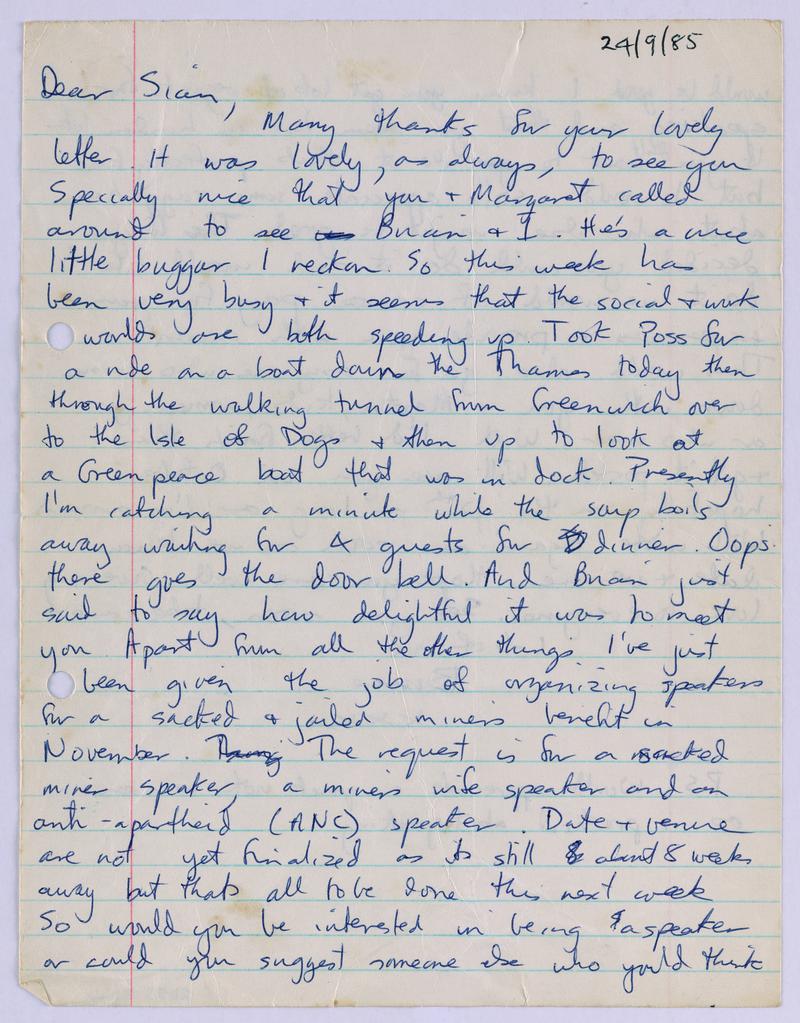 24/9/85
Dear Sian,
Many thanks for your lovely
letter. It was lovely, as always, to see you
Specially nice that you + Margaret called
around to see Brian & I. He's a nice
little buggar I reckon. So this week has
been very busy + it seems that the social + work
worlds are both speeding up. Took Poss for
a ride on a boat down the Thames today then
through the walking tunnel from Greenwich over
to the Isle of Dogs + then up to look at
a Greenpeace boat that was in dock. Presently
I'm catching a minute while the soup boils
away waiting for 4 guests for dinner. Oops
there goes the door bell. And Brian just
said to say how delightful it was to meet
you. Apart from all the other things I've just
been given the job of organizing speakers
for a sacked & jailed miners benefit in
November. The request is for a sacked
miner speaker, a miners wife speaker and an
anti-apartheid (ANC) speaker. Date + venue
are not yet finalized as its still about 8 weeks
away but thats all to be done this next week
So would you be interested in being a speaker
or could you suggest someone else who you'd think